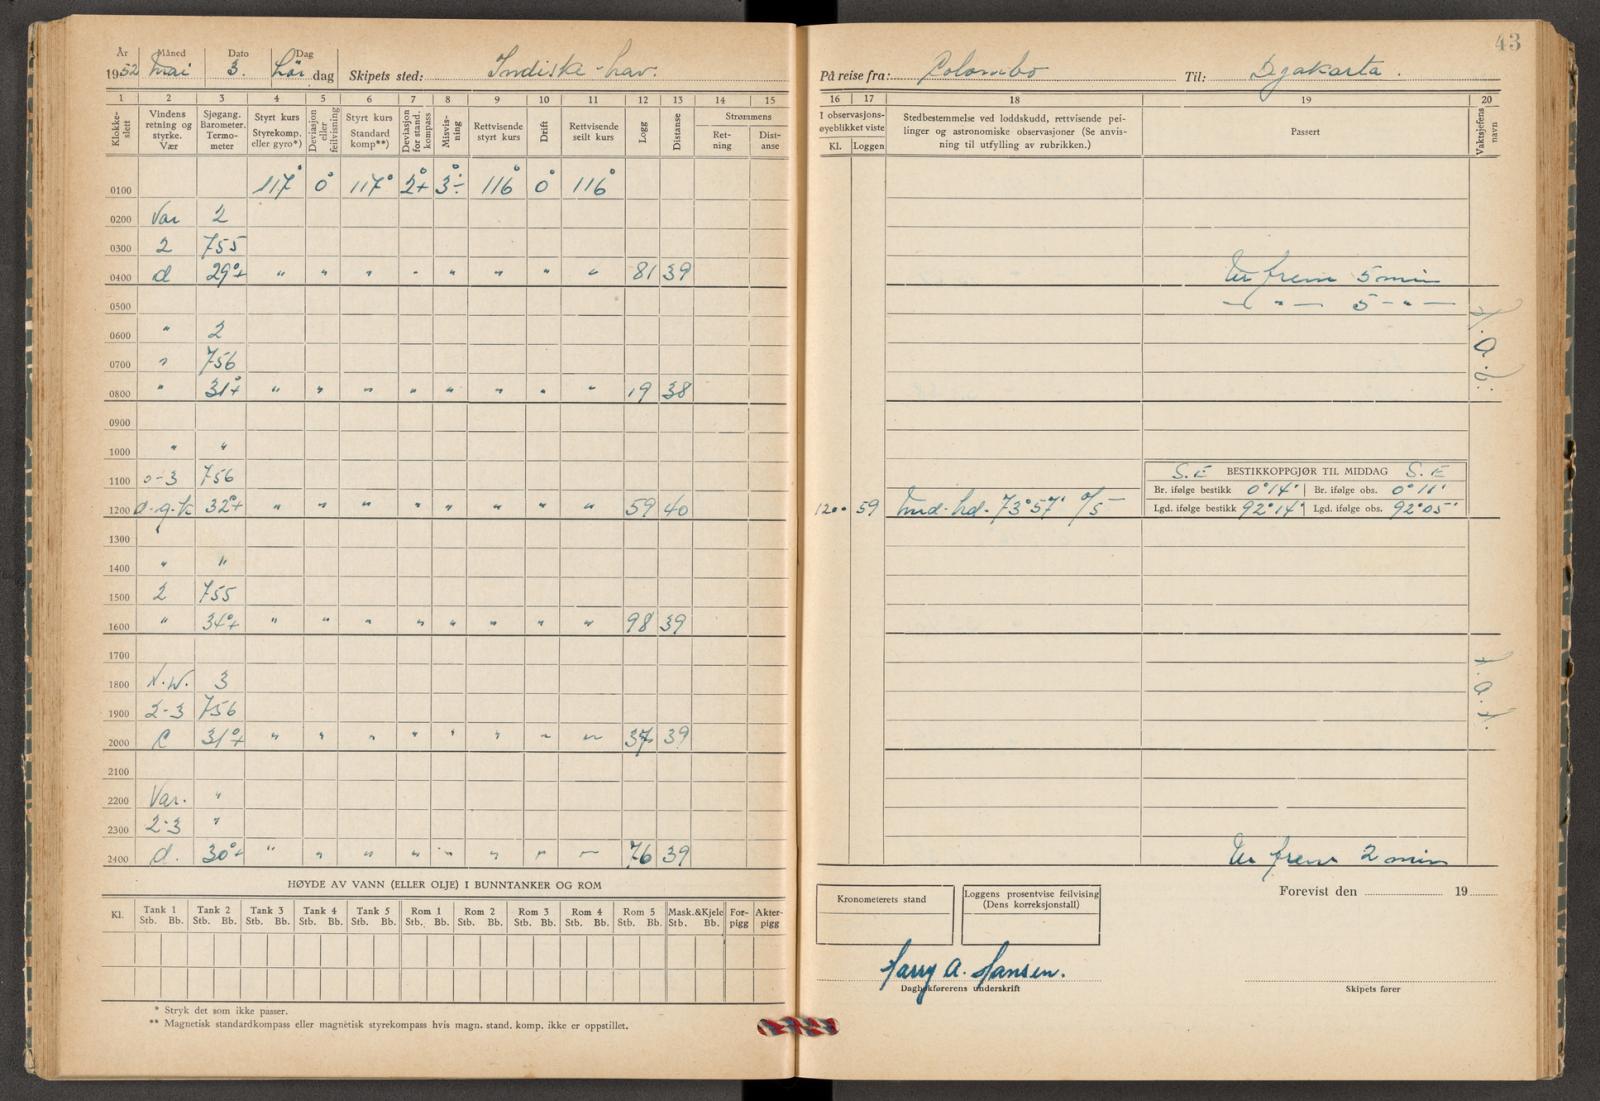 År Måned Dato Dag
1952 Mai 3. Lør dag Skipets sted: Indiske-hav.
1 2 3 4 5 6 7 8 9 10 11 12 13 14 15
Klokke-slett
Vindens retning og styrke. Vær
Sjøgang. Barometer. Termo-meter
Styrt kurs Styrekomp. eller gyro*)
Deviasjon eller feilvisning
Styrt kurs Standard komp**)
Deviasjon for stand. kompass
Misvis-ning
Rettvisende styrt kurs
Drift
Rettvisende seilt kurs
Logg
Distanse
Strømmens
Ret-ning
Dist-anse
0100 117° 0° 117° 2°+ 3°÷ 116° 0° 116°
0200 Var 2
0300 2 755
0400 d 29°+ " " " " " " " " 81 39
0500
0600 " 2
0700 " 756
0800 " 31°+ " " " " " " " " 19 38
0900
1000 " "
1100 2-3 756
1200 d.q.k 32°+ " " " " " " " " 59 40
1300
1400 " "
1500 2 755
1600 " 34°+ " " " " " " " " 98 39
1700
1800 N.W. 3
1900 2-3 756
2000 C 31°+ " " " " " " " " 37 39
2100
2200 Var. "
2300 2-3 "
2400 d. 30°+ " " " " " " " " 76 39
HØYDE AV VANN (ELLER OLJE) I BUNNTANKER OG ROM
Kl. Tank 1 Tank 2 Tank 3 Tank 4 Tank 5 Rom 1 Rom 2 Rom 3 Rom 4 Rom 5 Mask.&Kjele For-pigg Akter-pigg
Stb. Bb. Stb. Bb. Stb. Bb. Stb. Bb. Stb. Bb. Stb. Bb. Stb. Bb. Stb. Bb. Stb. Bb. Stb. Bb. Stb. Bb.
* Stryk det som ikke passer.
** Magnetisk standardkompass eller magnetisk styrekompass hvis magn. stand. komp. ikke er oppstillet.
43
På reise fra: Colombo Til: Djakarta.
16 17 18 19 20
I observasjons-øyeblikket viste
Kl. Loggen
Stedbestemmelse ved loddskudd, rettvisende pei-
linger og astronomiske observasjoner (Se anvis-
ning til utfylling av rubrikken.)
Passert
Vaktsjefens navn
Ur frem 5 min
— " — 5 — " —
S.E BESTIKKOPPGJØR TIL MIDDAG S.E
Br. ifølge bestikk 0°14' Br. ifølge obs. 0°11'
1200 59 73°57'
Lgd. ifølge bestikk 92°14' Lgd. ifølge obs. 92°05'
Ur frem 2 min
Kronometerets stand
Loggens prosentvise feilvising
(Dens korreksjonstall)
Forevist den 19
Harry A. Hansen.
Dagbokførerens underskrift
Skipets fører